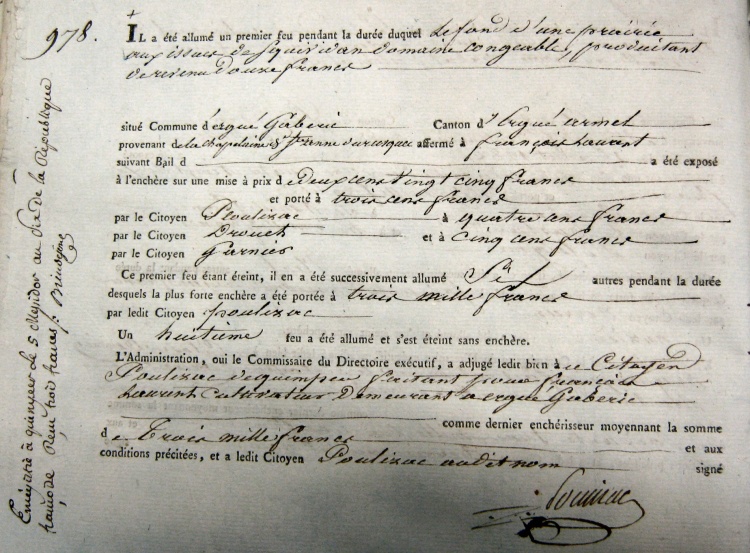 978.
IL a été allumé un premier feu pendant la durée duquel Le fond d'une prairie
aux issues de Squividan domaine congeable, produisant
de revenu Douze francs
situé Commune d'ergué Gaberic Canton d'Ergué armel
provenant de la Chapelainie affermé à françois Laurent
suivant Bail d a été exposé
à l'enchère sur une mise à prix d Deux cens Vingt cinq francs
et porté à trois cens francs
par le Citoyen Poulizac à quatre cens francs
par le Citoyen Drouet et à Cinq cens francs
par le Citoyen Garnier
Ce premier feu étant éteint, il en a été successivement allumé Six autres pendant la durée
desquels la plus forte enchère a été portée à trois mille francs
par ledit Citoyen Poulizac
Un huitième feu a été allumé et s'est éteint sans enchère.
L'Administration, oui le Commissaire du Directoire exécutif, a adjugé ledit bien à ce Citoyen
Poulizac de quimper faisant pour françois
Laurent Cultivateur Demeurant a ergué Gaberic
comme dernier enchérisseur moyennant la somme
d e Trois mille francs et aux
conditions précitées, et a ledit Citoyen Poulizac audit nom signé
Poulizac
Enregistré à quimper le 5 Messidor an Six de la République